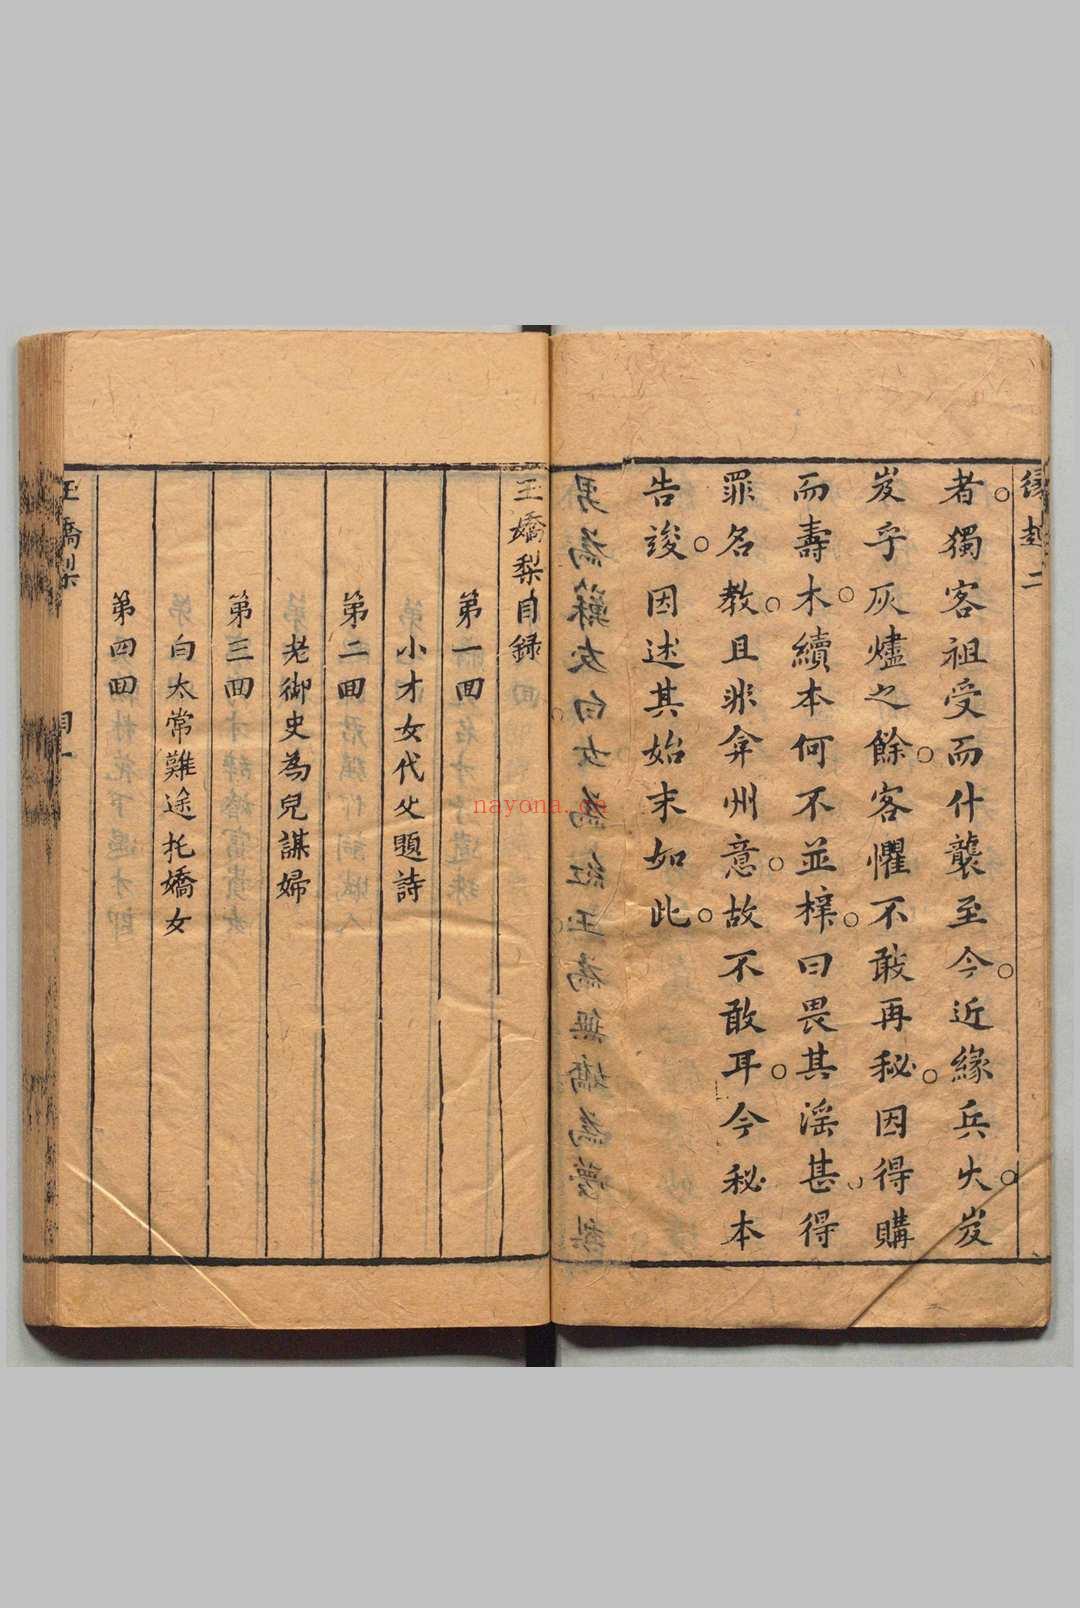 緣起 二
者獨客祖受而什襲至今近緣兵火岌
岌乎灰燼之餘客懼不敢再秘因得購
而壽木續本何不並梓曰畏其滛甚得
罪名教且非弇州意故不敢耳今秘本
告竣因述其始末如此
玉嬌梨目録
第一回
小才女代父題詩
第二回
老御史為兒謀婦
第三回
白太常難途托嬌女
第四回
玉嬌梨 目一
nayona.cn